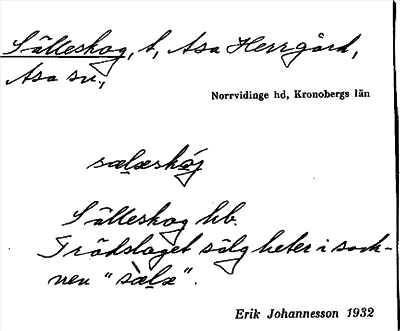 Sälleskog, t, Asa Herrgård,
Asa sn.,
Norrvidinge hd, Kronobergs län
sælæskǫ́j
Sälleskog hb.
Trädslaget sälg heter i sock-
nen "sælæ".
Erik Johannesson 1932